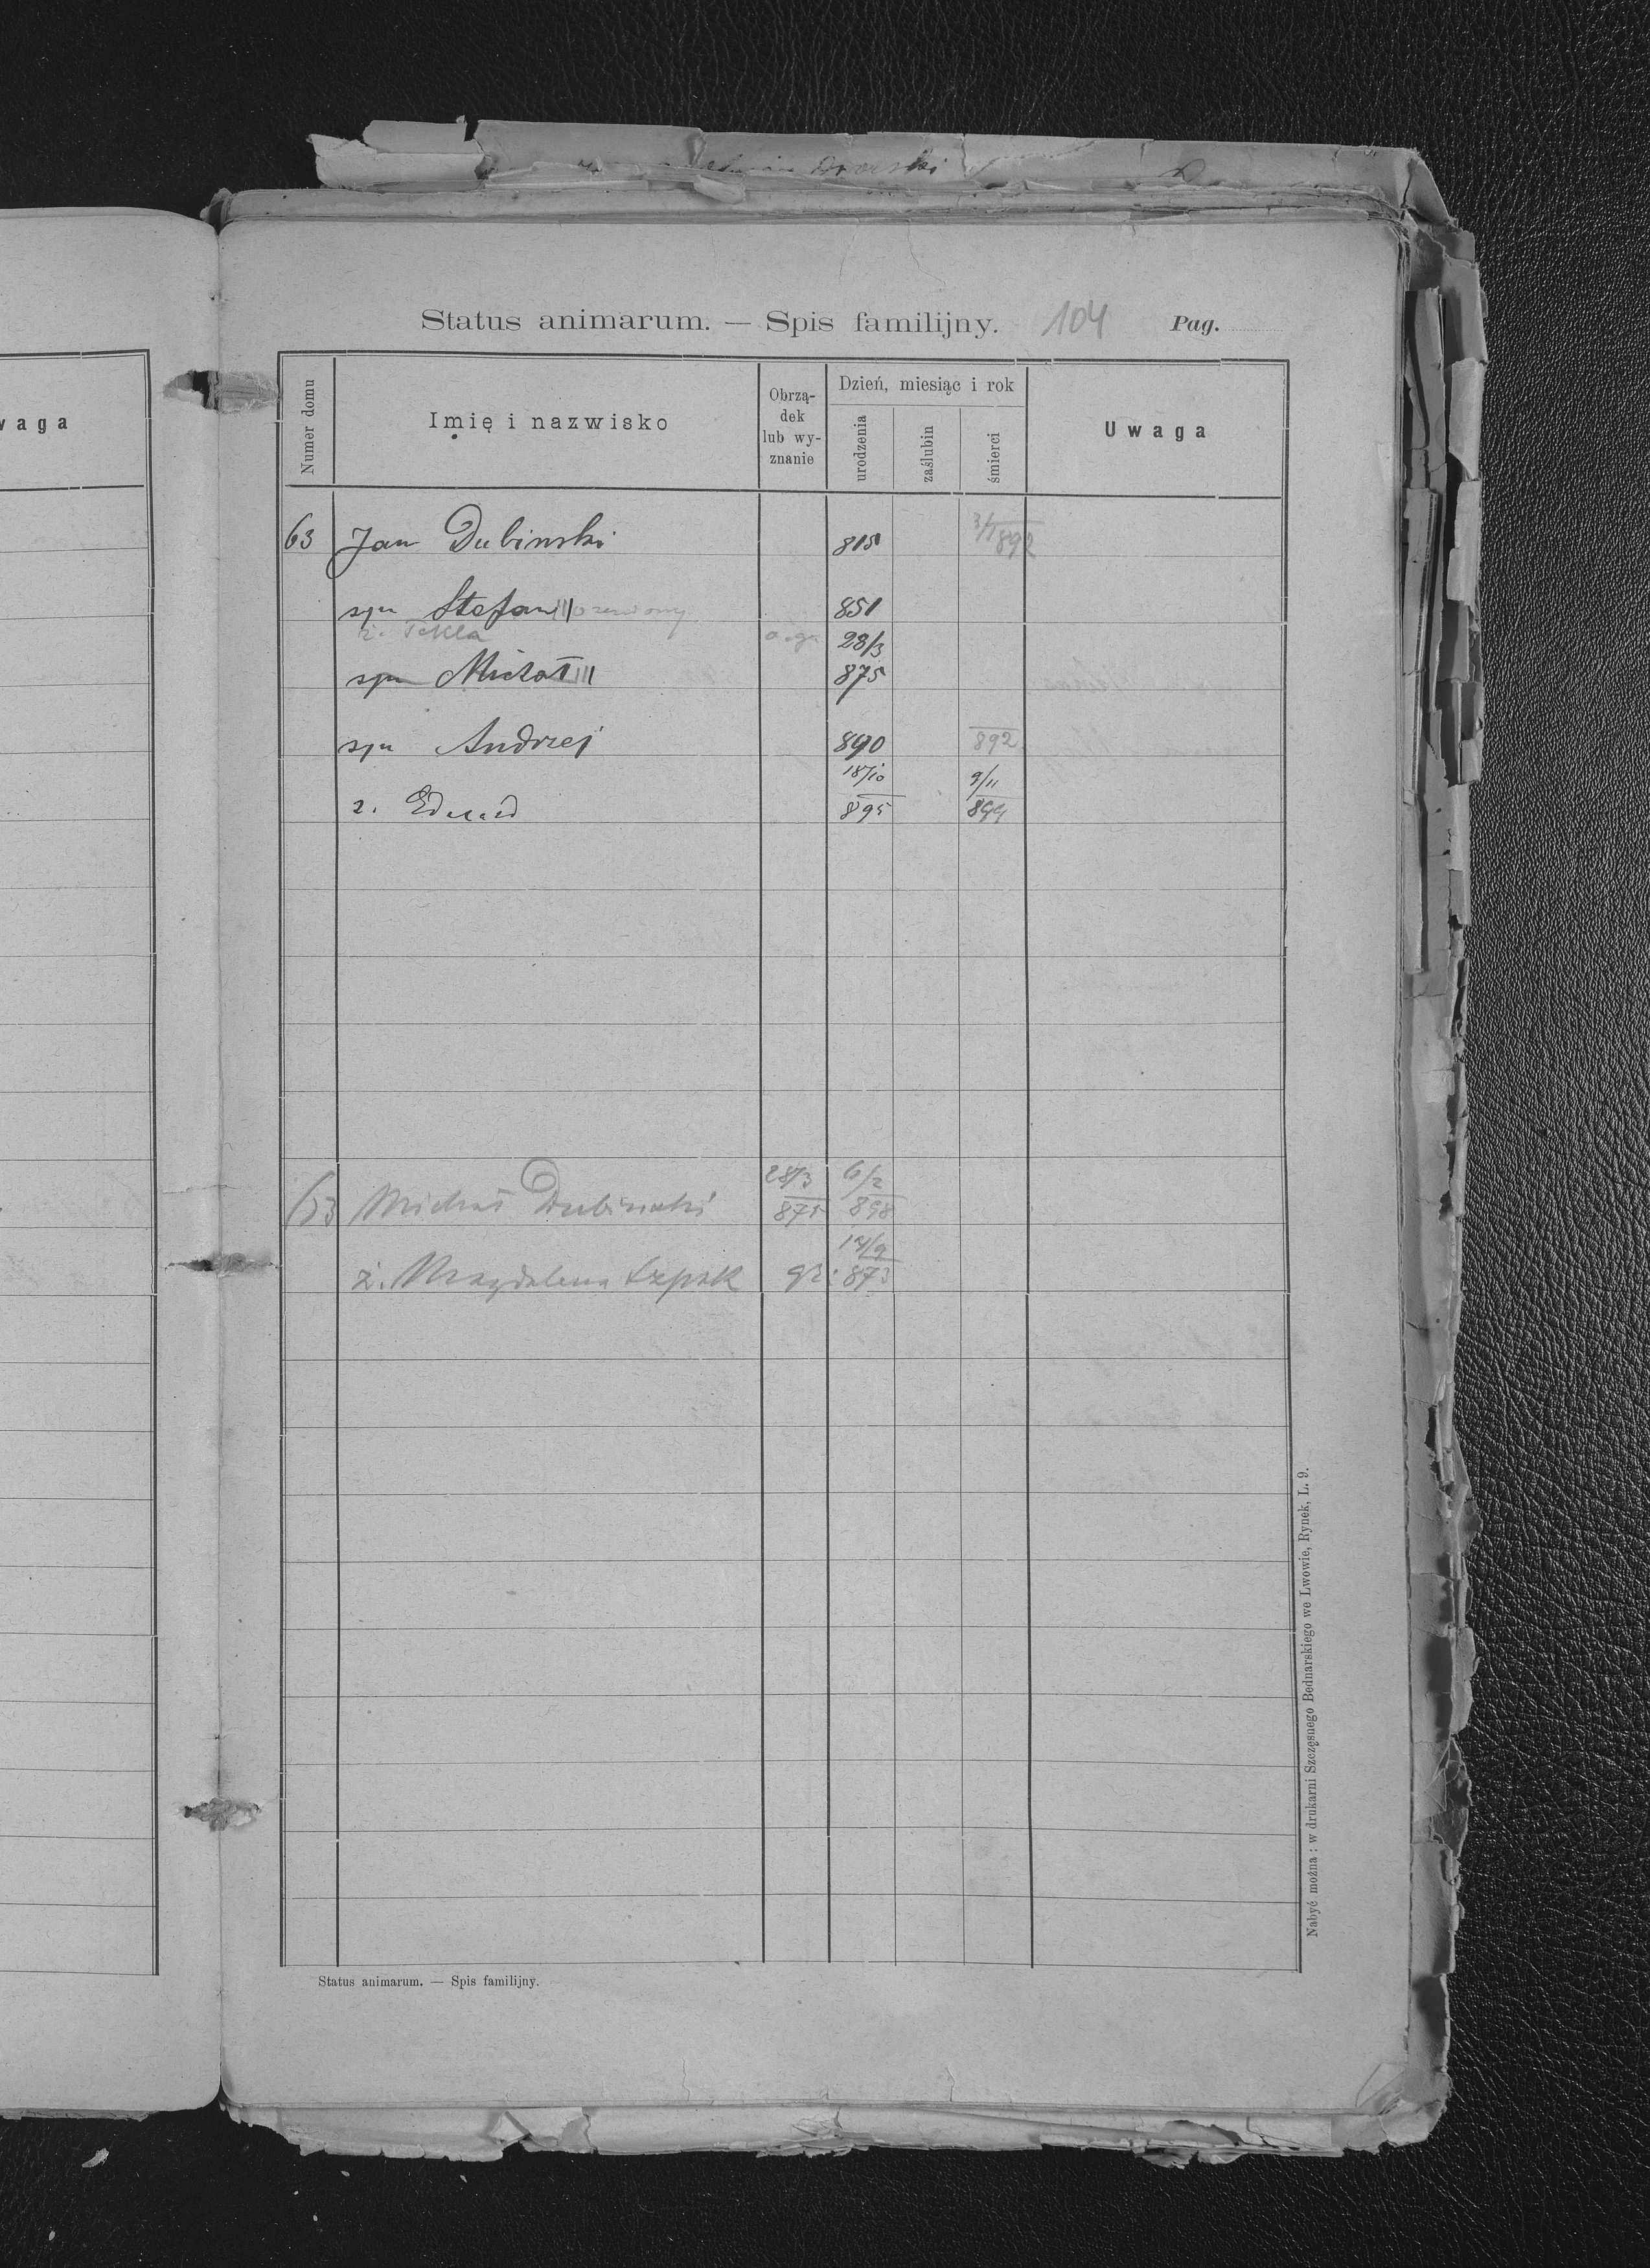 Status animarum. — Spis familijny. 104 Pag.
waga
Numer domu
Imię i nazwisko
Obrzą-
dek
lub wy-
znanie
Dzień, miesiąc i rok
urodzenia
zaślubin
śmierci
Uwaga
63 Jan Dubinski 815 3/1 892
syn Stefan ożeniony 851
ż. Tekla 28/3
syn Michał 875
syn Andrzej 890 892
18/10 9/11
2. Eduard 895 899
28/3 6/2
63 Michał Dubinski 875 898
17/9
ż. Magdalena Szpak gr: 873
Status animarum. — Spis familijny.
Nabyć można: w drukarni Szczęsnego Bednarskiego we Lwowie, Rynek, L. 9.